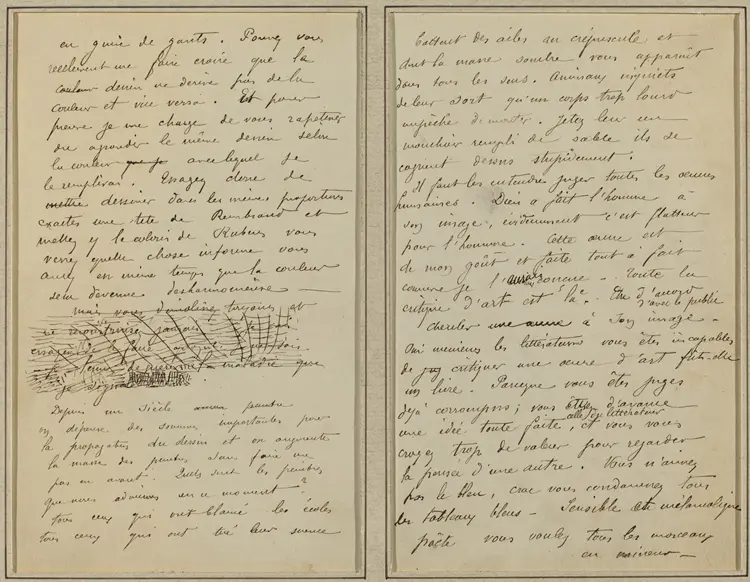 en guise de gants. Pouvez vous
reellement me faire croire que la
dessin ne derive pas de la
couleur et vice versa. Et pour
preuve je me charge de vous rapetisser
ou agrandir le même dessin selon
la couleur avec laquelle je
le remplirai. Essayez donc de
dessiner dans les mêmes proportions
exactes une tete de Rembrandt et
mettez y le coloris de Rubens vous
verrez quelle chose informe vous
aurez en même temps que la couleur
sera devenue desharmonieuse —
mais vous
Depuis un siècle
on dépense des sommes importantes pour
la propagation du dessin et on augmente
la masse des peintres sans faire un
pas en avant. Quels sont les peintres
que nous admirons en ce moment?
tous ceux qui ont blamé les écoles
tous ceux qui ont tiré leur science
battant des ailes au crépuscule et
dont la masse sombre vous apparait
dans tous les sens. Animaux inquiets
de leur sort qu'un corps trop lourd
empêche de monter. Jetez leur un
mouchoir rempli de sable ils se
cognent dessus stupidement.
Il faut les entendre juger toutes les œuvres
humaines. Dieu a fait l'homme à
son image, évidemment c'est flatteur
pour l'homme. Cette œuvre est
de mon goût et faite tout à fait
comme je l'aurais conçue. Toute la
critique d'art est là. Etre d'accord
avec le public
chercher une œuvre à son image.
Oui messieurs les litterateurs vous êtes incapables
de critiquer une œuvre d'art fût-elle
un livre. Parceque vous êtes juges
déjà corrompus; vous avez d'avance
une idée toute faite, celle du litterateur
et vous vous
croyez trop de valeur pour regarder
la pensée d'une autre. Vous n'aimez
pas le bleu, car vous condamnez tous
les tableaux bleus — Sensible et mélancolique
poëte vous voulez tous les morceaux
en mineur —